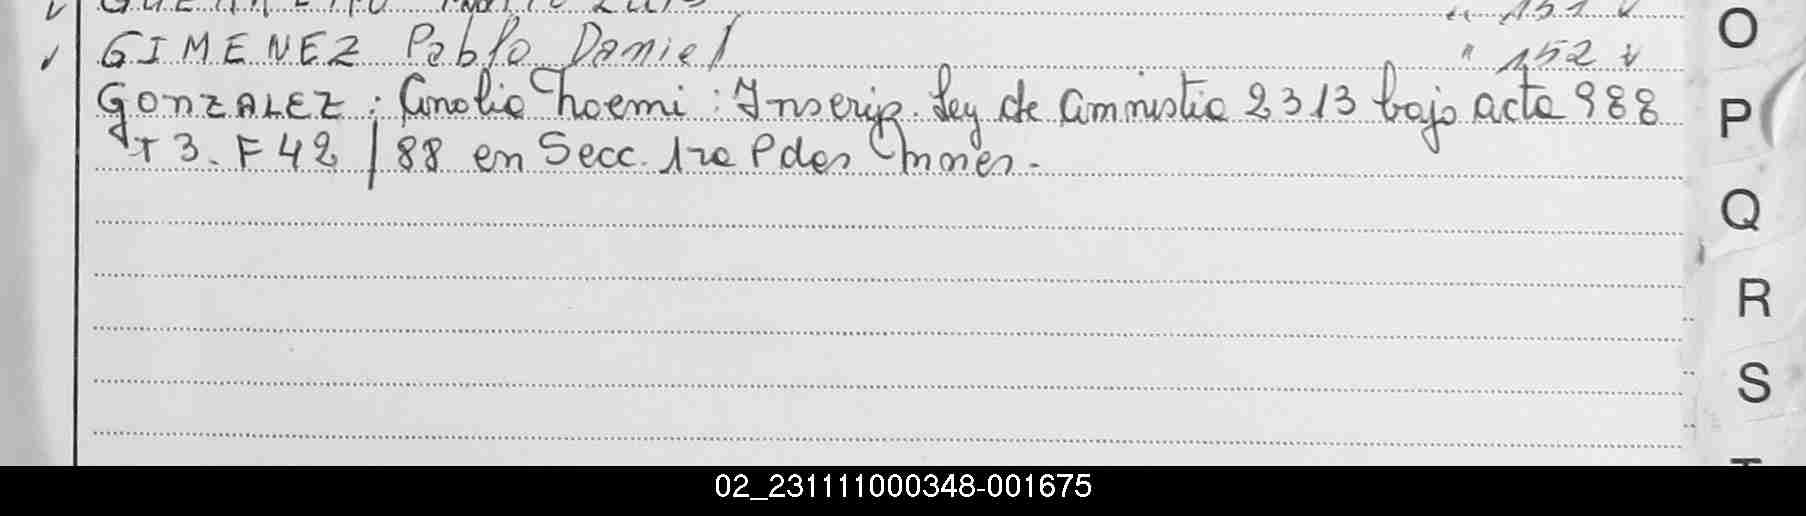 " 151 v
✓ GIMENEZ Pablo Daniel " 152 v
GONZALEZ: Analia Noemi: Inscrip. Ley de amnistia 2313 bajo acta 988
T 3. F 42 / 88 en Secc. 1ra Pdas
O
P
Q
R
S
02_231111000348-001675